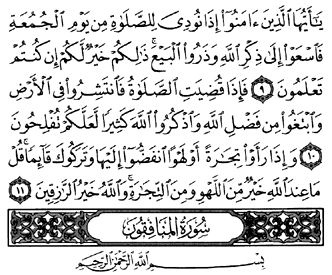 يَٰٓأَيُّهَا ٱلَّذِينَ ءَامَنُوٓا۟ إِذَا نُودِىَ لِلصَّلَوٰةِ مِن يَوْمِ ٱلْجُمُعَةِ
فَٱسْعَوْا۟ إِلَىٰ ذِكْرِ ٱللَّهِ وَذَرُوا۟ ٱلْبَيْعَ ۚ ذَٰلِكُمْ خَيْرٌ لَّكُمْ إِن كُنتُمْ
تَعْلَمُونَ ٩ فَإِذَا قُضِيَتِ ٱلصَّلَوٰةُ فَٱنتَشِرُوا۟ فِى ٱلْأَرْضِ
وَٱبْتَغُوا۟ مِن فَضْلِ ٱللَّهِ وَٱذْكُرُوا۟ ٱللَّهَ كَثِيرًا لَّعَلَّكُمْ تُفْلِحُونَ
١٠ وَإِذَا رَأَوْا۟ تِجَٰرَةً أَوْ لَهْوًا ٱنفَضُّوٓا۟ إِلَيْهَا وَتَرَكُوكَ قَآئِمًا ۚ قُلْ
مَا عِندَ ٱللَّهِ خَيْرٌ مِّنَ ٱللَّهْوِ وَمِنَ ٱلتِّجَٰرَةِ ۚ وَٱللَّهُ خَيْرُ ٱلرَّٰزِقِينَ ١١
سُورَةُ المُنَافِقُونَ
بِسْمِ ٱللَّهِ ٱلرَّحْمَٰنِ ٱلرَّحِيمِ